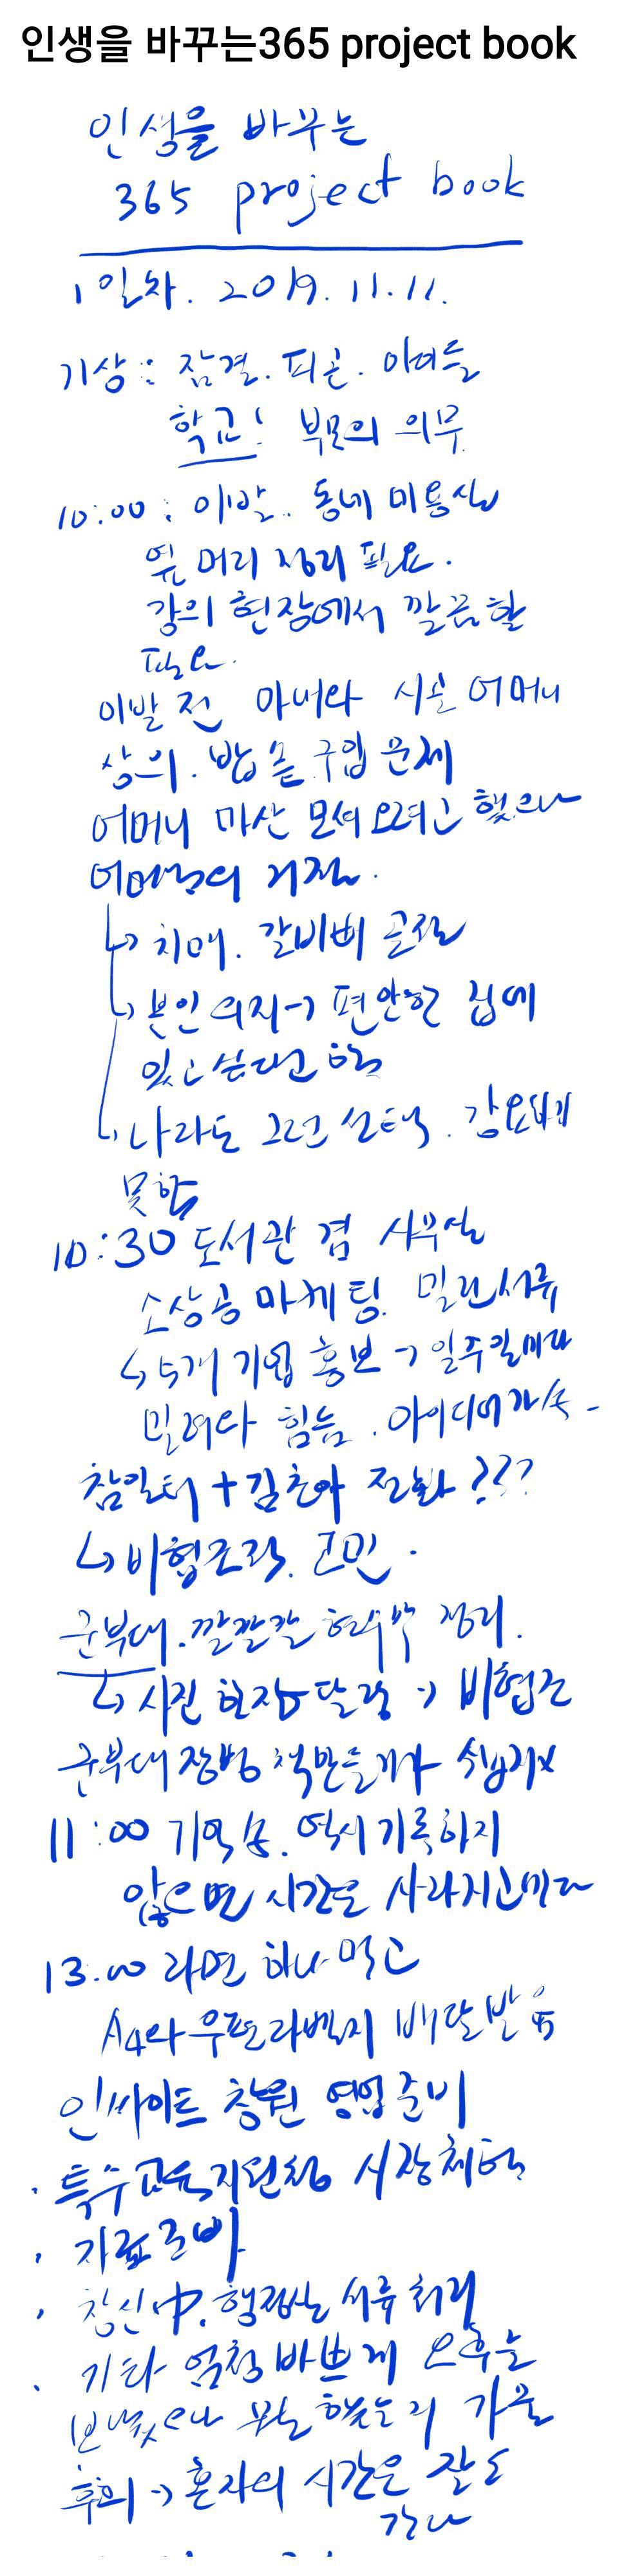 인생을 바꾸는365 project book
인생을 바꾸는
365 project book
1일차. 2019. 11. 11.
기상: 잠결. 피곤. 아이들
학교! 부모의 의무
10:00 : 이발. 동네 미용실
옆머리 정리 필요.
강의 현장에서 깔끔할
필요.
이발 전 아내와 시골 어머니
상의. 밥솥 구입 문제
어머니 마산 모셔오려고 했으나
어머님의 거절.
↳ 치매. 갈비뼈 골절
↳ 본인 의지→ 편안한 집에
있고 싶다고 함
↳ 나라도 그런 선택. 강요하지
못함
10:30 도서관 겸 사무실
소상공 마케팅. 밀린 서류
↳ 5개 기업 홍보 → 일주일마다
밀려와 힘듦. 아이디어
참일터 + 김 전화???
↳ 비협조적. 고민.
군부대. 깔깔깔 정리.
↳ 사진 한장 달랑 → 비협조
군부대 장병 책만들기가 쉽지x
11:00 역시 기록하지
않으면 시간은 사라지고마다
13.00 라면 하나 먹고
A4와 우편라벨지 배달받음
인싸이트 창원 영업 준비
· 특수교육지원청 시장체험
· 자료준비
· 창신中. 행정실 서류 처리
· 기타 엄청 바쁘게 오후는
보냈으나 무얼 했는지 가물
후회 → 혼자의 시간은 잘도
간다